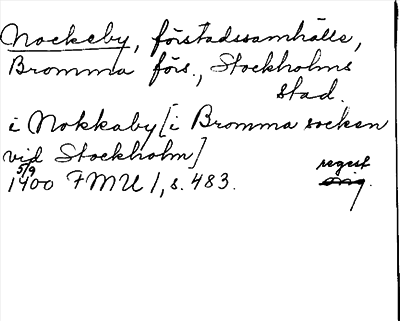 Nockeby, förstadssamhälle,
Bromma förs., Stockholms
stad.
i Nokkaby [i Bromma socken
vid Stockholm]
regest
1400 5/9 FMU 1, s. 483. orig.